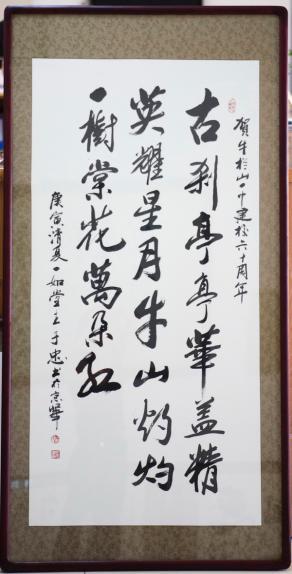 贺牛栏山一中建校六十周年
古刹亭亭華盖精
英耀星月牛山灼灼
一樹棠花萬朵红
庚寅清夏一如堂主于忠书於京華